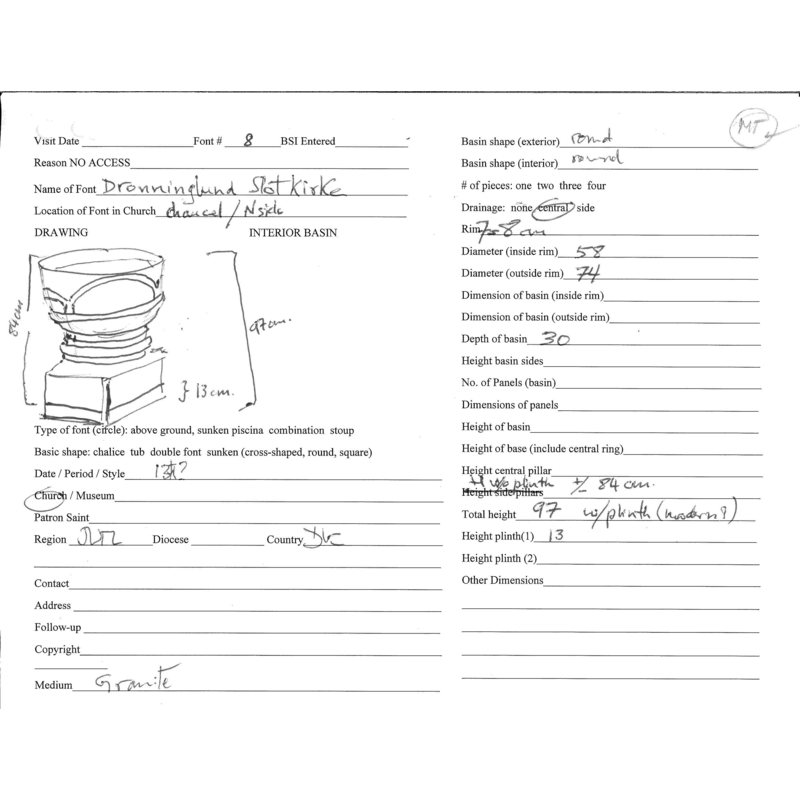 MT
Visit Date Font # 8 BSI Entered
Reason NO ACCESS
Name of Font Dronninglund Slotkirke
Location of Font in Church chancel / N side
DRAWING INTERIOR BASIN
84cm
97cm.
} 13 cm.
Type of font (circle): above ground, sunken piscina combination stoup
Basic shape: chalice tub double font sunken (cross-shaped, round, square)
Date / Period / Style 13th?
Church / Museum
Patron Saint
Region Diocese Country
Contact
Address
Follow-up
Copyright
Medium Granite
Basin shape (exterior) round
Basin shape (interior) round
# of pieces: one two three four
Drainage: none central side
Rim 7-8 cm
Diameter (inside rim) 58
Diameter (outside rim) 74
Dimension of basin (inside rim)
Dimension of basin (outside rim)
Depth of basin 30
Height basin sides
No. of Panels (basin)
Dimensions of panels
Height of basin
Height of base (include central ring)
Height central pillar
H w/o plinth +/- 84 cm.
Height side/pillars
Total height 97 w/plinth (modern?)
Height plinth(1) 13
Height plinth (2)
Other Dimensions